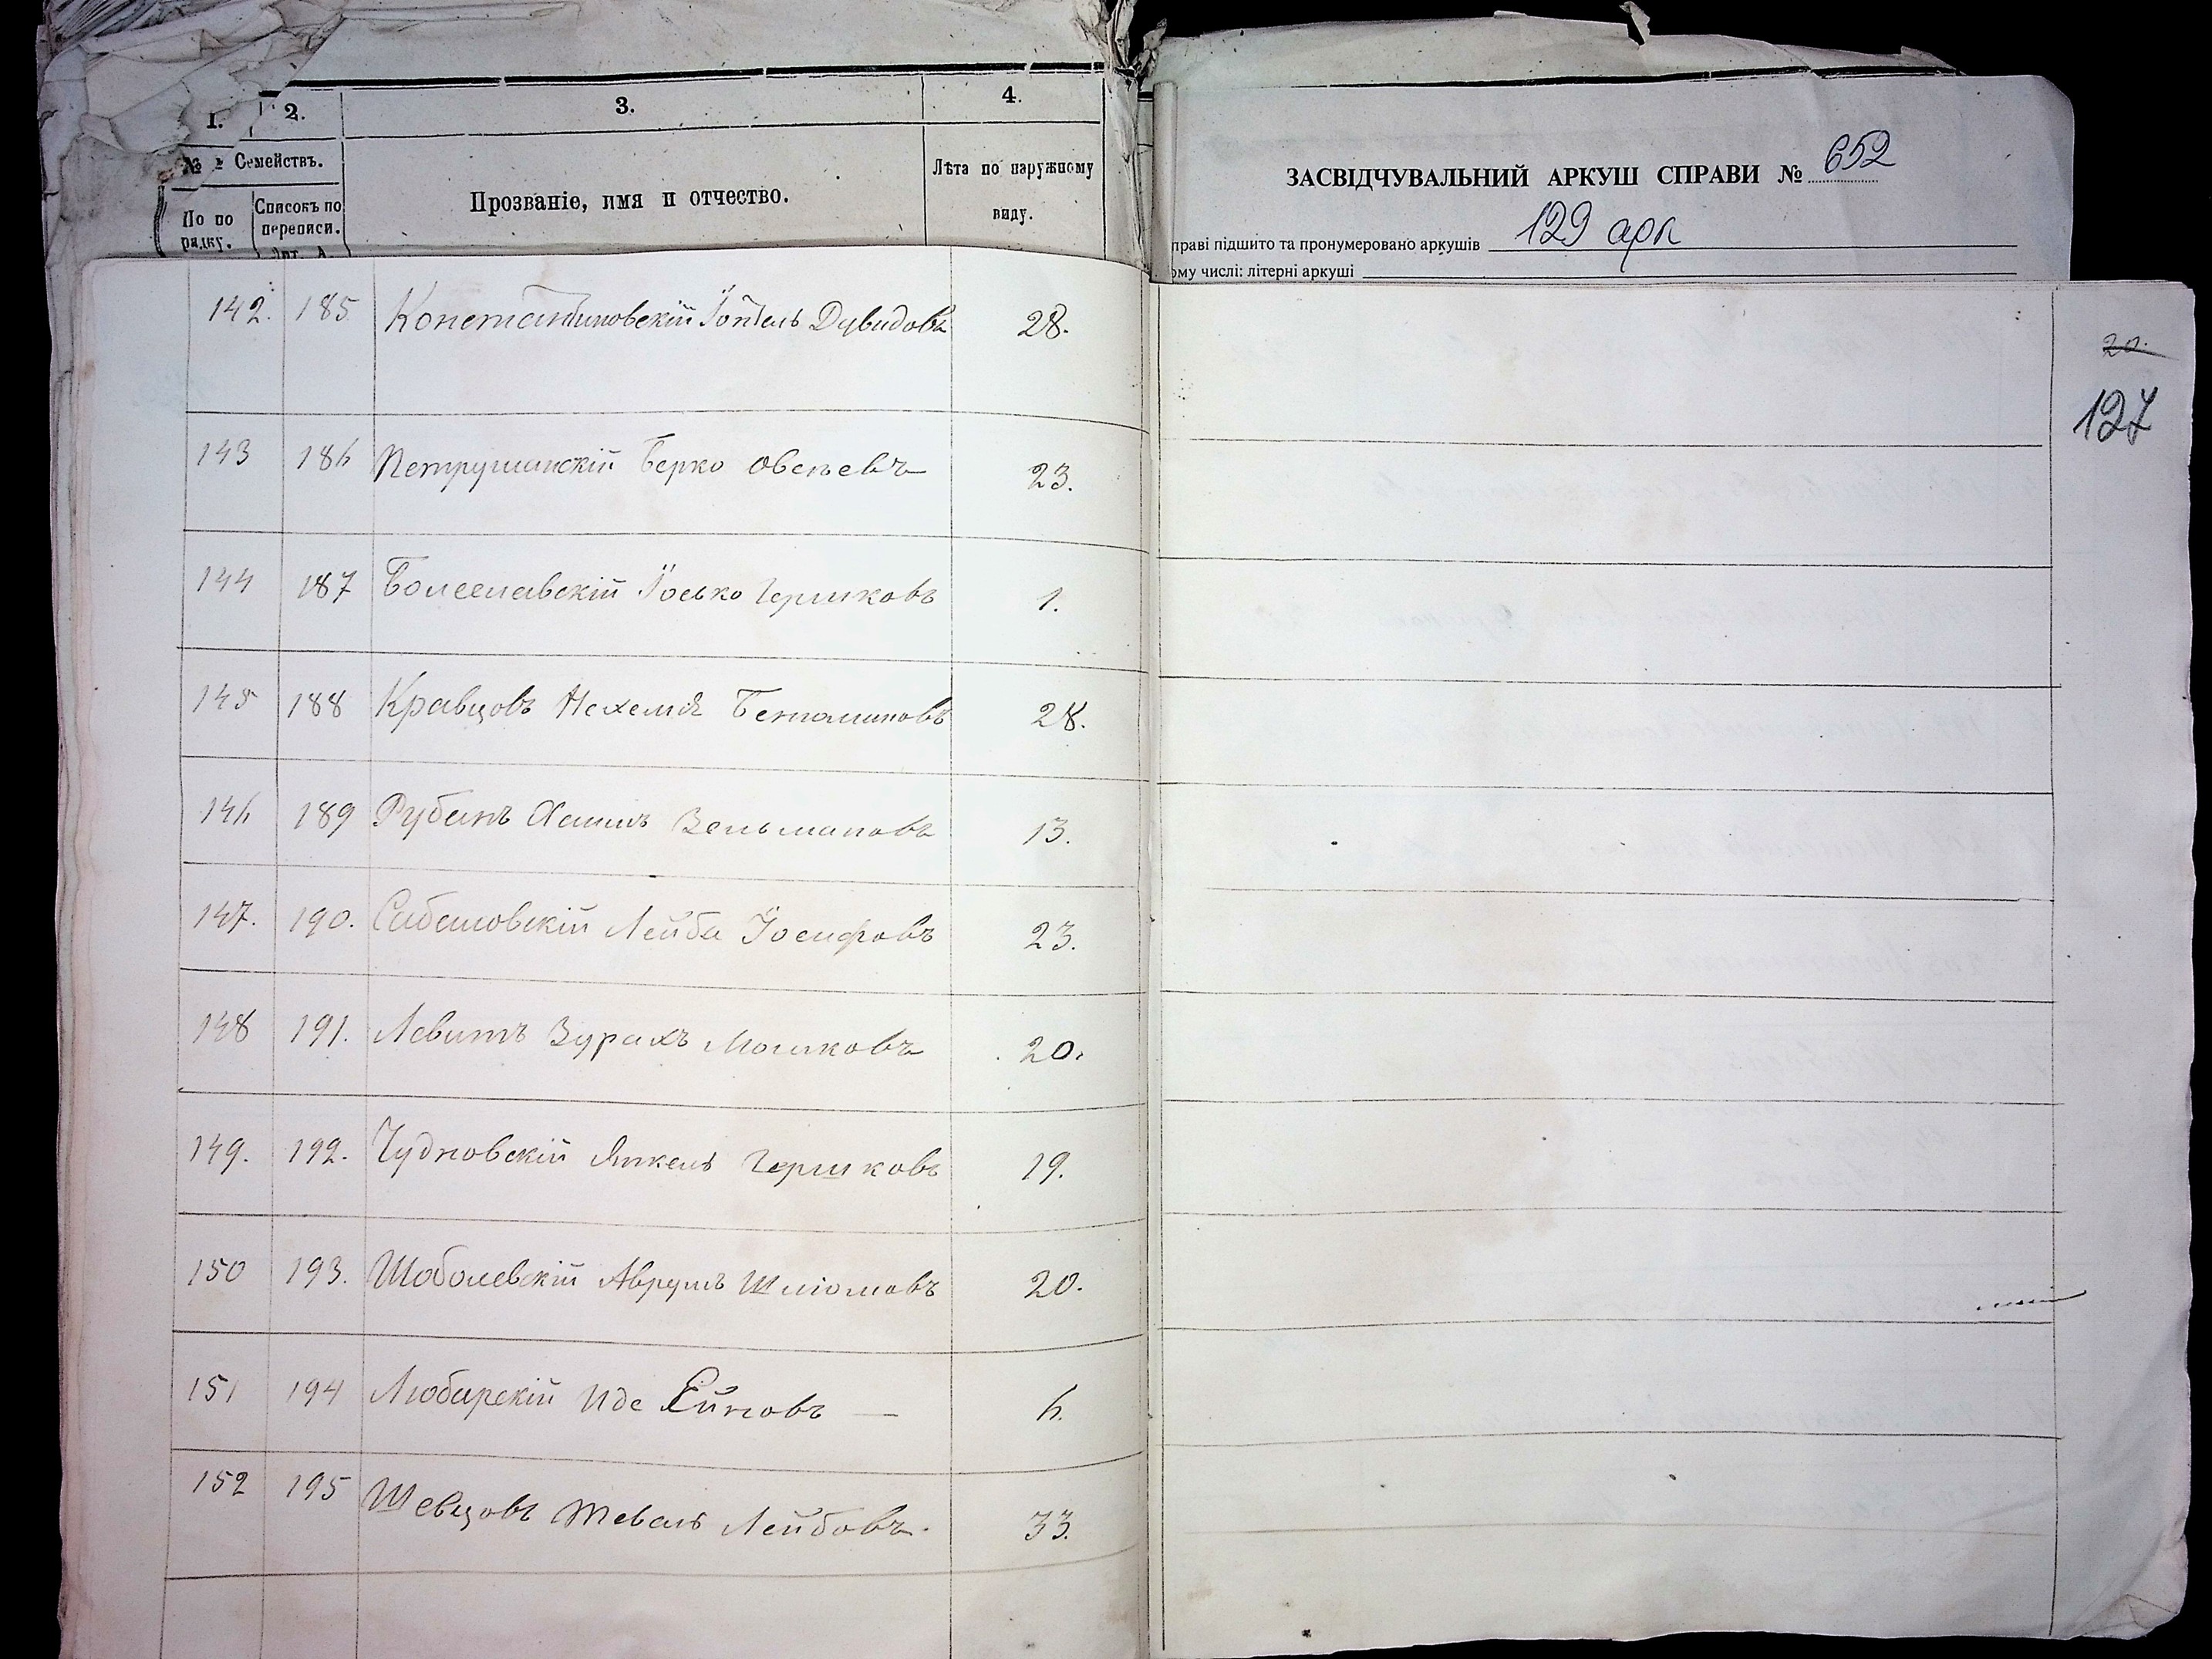 1. 2. 3. 4.
№ Семействъ.
По по рядку.
Списокъ по переписи.
Лит. А.
Прозваніе, имя и отчество.
Лѣта по наружному
виду.
ЗАСВІДЧУВАЛЬНИЙ АРКУШ СПРАВИ № 652
праві підшито та пронумеровано аркушів 129 арк
ому числі: літерні аркуші
20.
127
142. 185 Константиновскій Дувидовъ 28.
143 186 Петрушанскій Берко Овсѣевъ 23.
144 187 Болеславскій Іосько Гершковъ 1.
145 188 Кравцовъ Нехемія Беньаминовъ 28.
146 189 Рубанъ Хаимъ Зельмановъ 13.
147. 190. Сабатовскій Лейба Іосифовъ 23.
148 191. Левитъ Зурахъ Мошковъ 20.
149. 192. Чудновскій Янкель Гершковъ 19.
150 193. Шоболевскій Аврумъ Шліомовъ 20.
151 194 Любарскій Иде Ейновъ — 6.
152 195 Шевцовъ Шеваль Лейбовъ. 33.